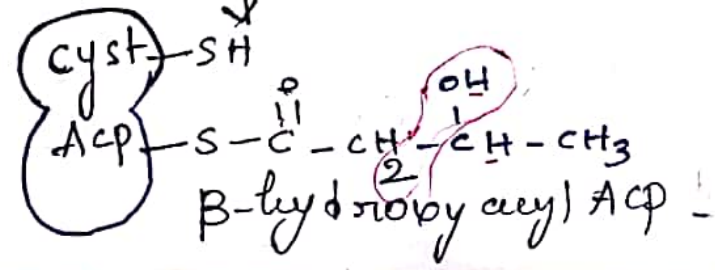 Cyst-SH
OH
O
ACP-S-C-CH2-CH-CH3
β-hydroxy acyl ACP